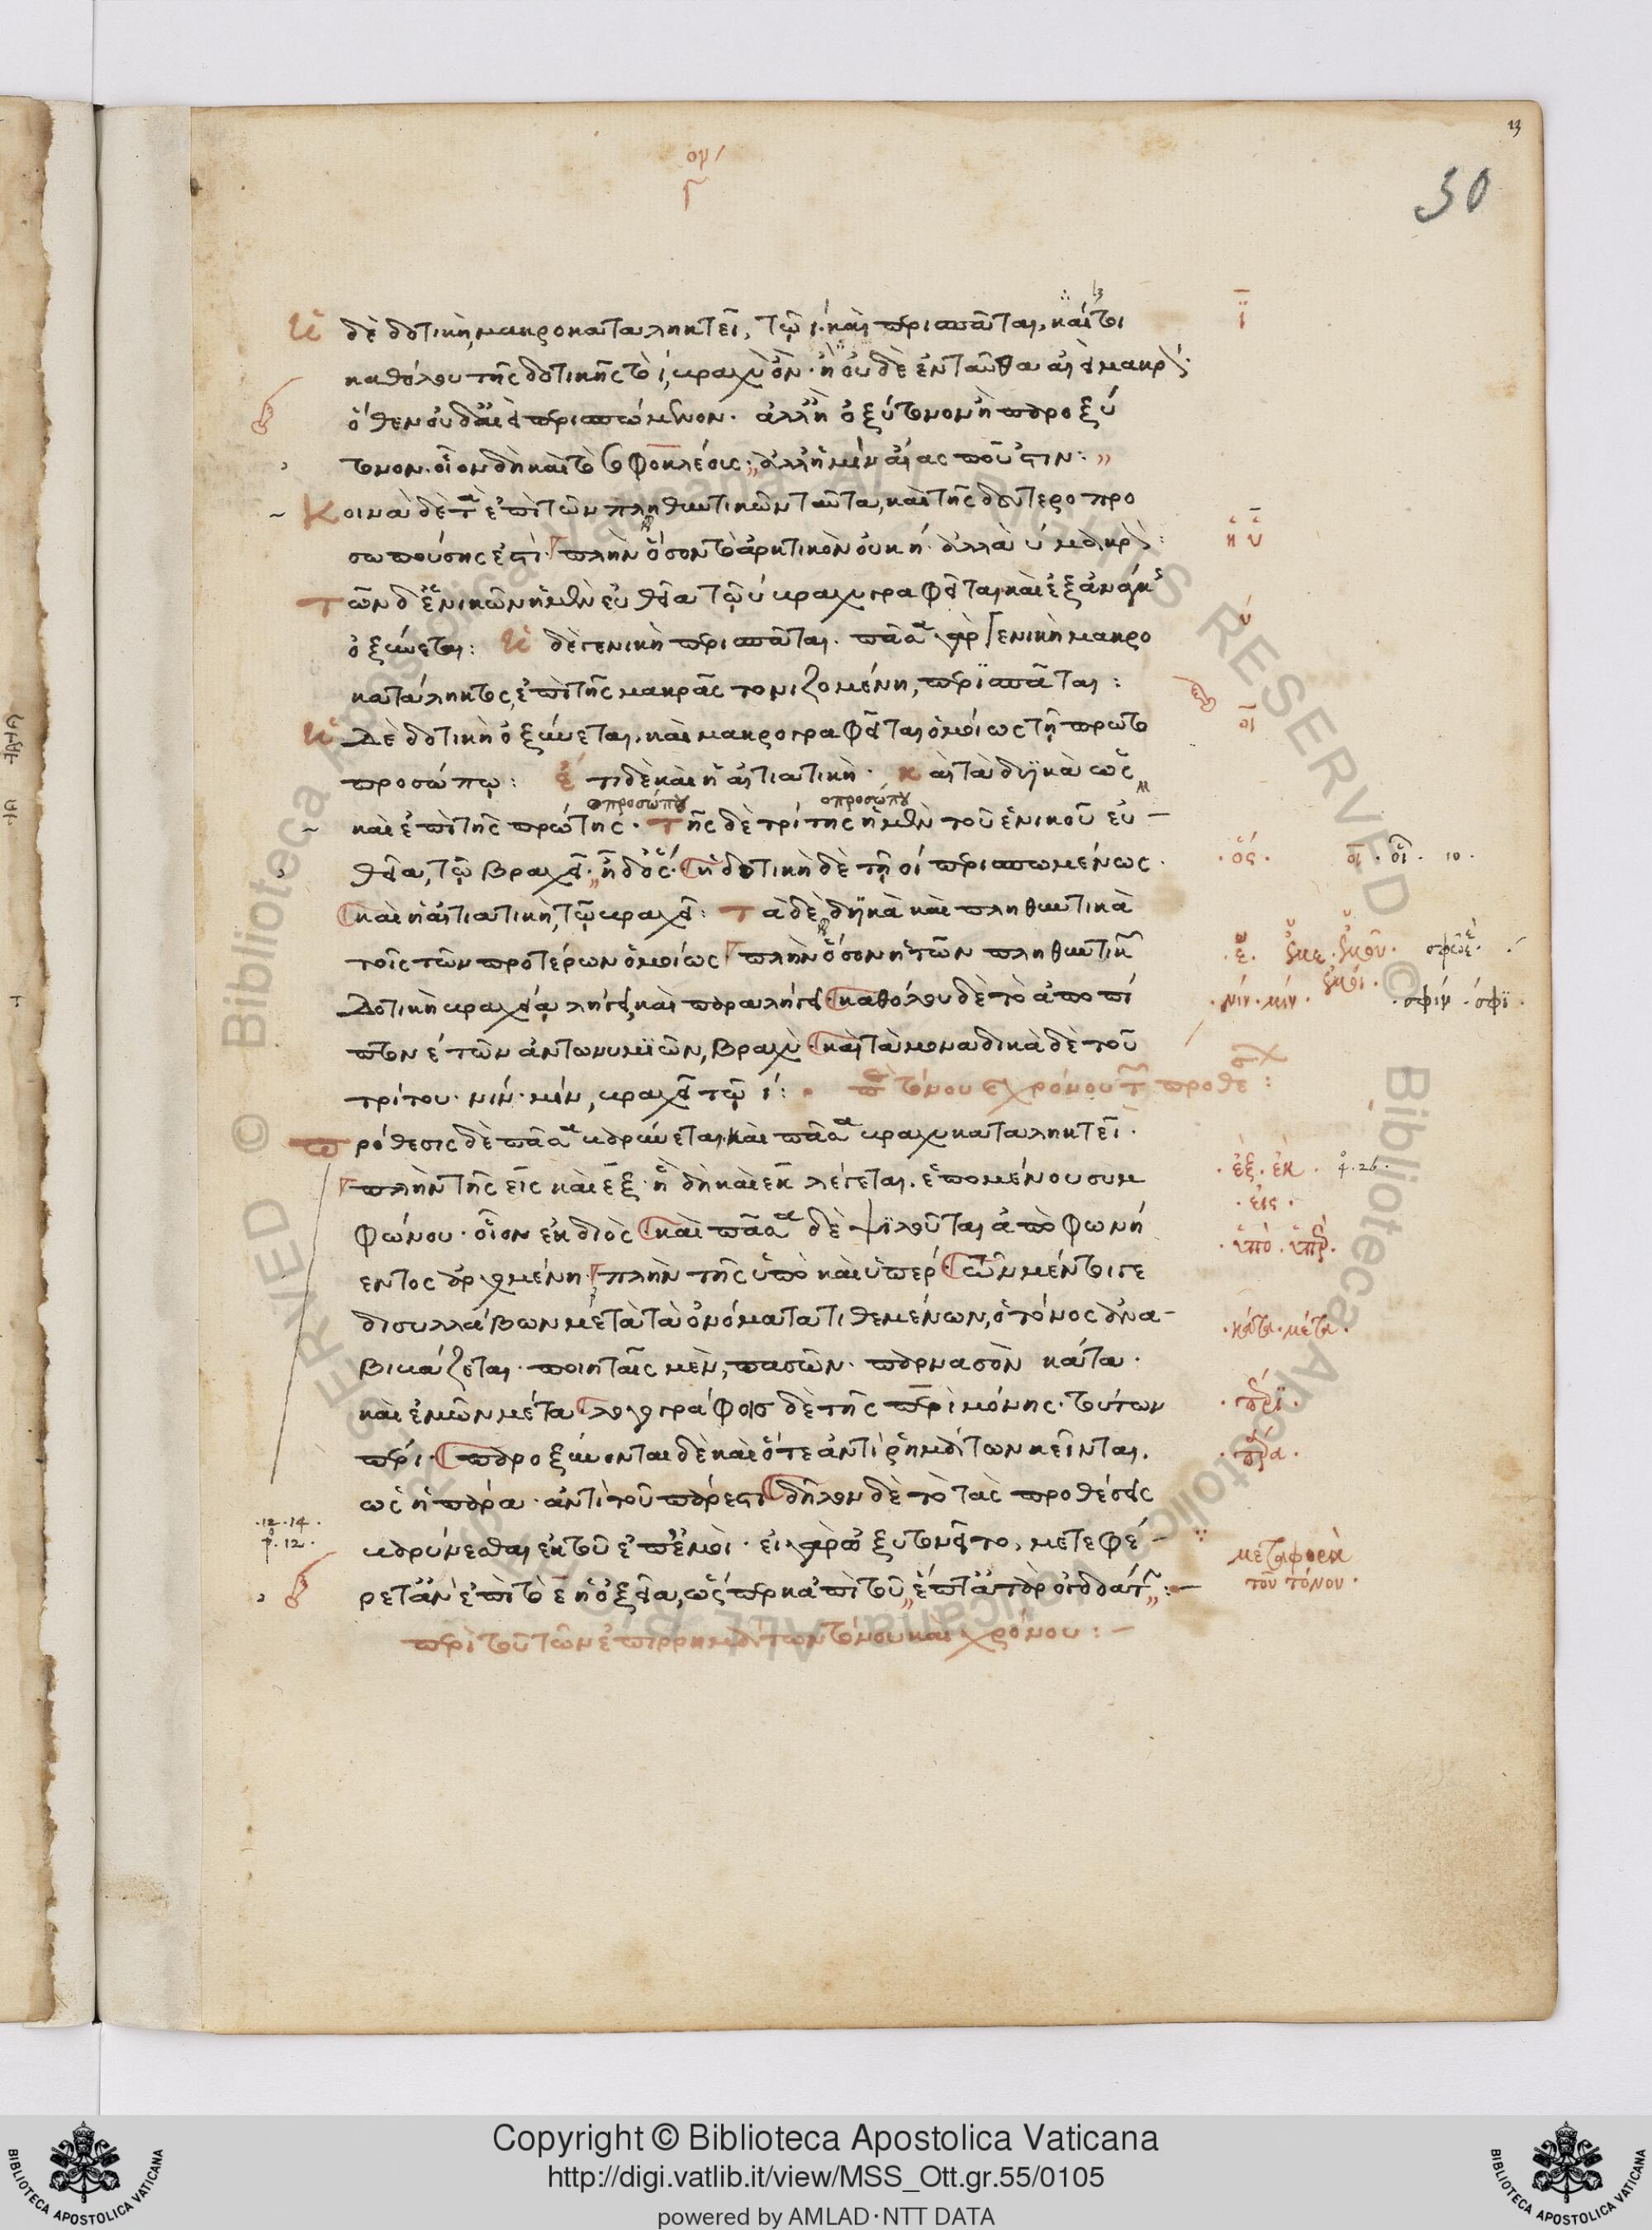 13
30
Ἡ δὲ δοτικὴ, μακροκαταληκτεῖ, τῷ ι. καὶ περισπᾶται. καίτοι
καθόλου τῆς δοτικῆς τὸ ι, βραχὺ ὄν. ἢ οὐδὲ ἐνταῦθα ἀεὶ μακρόν.
ὅθεν οὐδ' ἀεὶ περισπώμενον. ἀλλ' ἢ ὀξύτονον ἢ παροξύ
τονον. οἷον δὴ καὶ τὸ Σοφοκλέους· ἀλλ' ἡμὶν αἴας ποῦ 'στιν:
Κοινὰ δὲ τὰ ἐπὶ τῶν πληθυντικῶν ταῦτα, καὶ τῆς δευτεροπρο
σωπούσης ἐστί. πλὴν ὅσον τὸ ἀρκτικὸν οὐκ η. ἀλλὰ υ μακρόν:
Τῶν δ' ἑνικῶν ἡ μὲν εὐθεῖα τῷ υ βραχυγραφεῖται καὶ ἐξ ἀνάγκης
ὀξύνεται: Ἡ δὲ γενικὴ περισπᾶται. πᾶσα γὰρ γενικὴ μακρο
κατάληκτος, ἐπὶ τῆς μακρᾶς τονιζομένη, περισπᾶται:
Ἡ δὲ δοτικὴ ὀξύνεται. καὶ μακρογραφεῖται ὁμοίως τῇ πρώτῳ
προσώπῳ: ἔτι δὲ καὶ ἡ αἰτιατική. καὶ τὰ δυϊκὰ ὡς
προσώπου προσώπου
καὶ ἐπὶ τῆς πρώτης. Τῆς δὲ τρίτης ἡ μὲν τοῦ ἑνικοῦ εὐ
θεῖα, τῷ βραχεῖ. ἢ δ' ὅς. ἡ δοτικὴ δὲ τῇ οι περισπωμένως.
καὶ ἡ αἰτιατικὴ, τῷ βραχεῖ: Τὰ δὲ δυϊκὰ καὶ πληθυντικὰ
τοῖς τῶν προτέρων ὁμοίως πλὴν ὅσον ἡ τῶν πληθυντικῶν
δοτικὴ βραχείᾳ λήγει, καὶ παραλήγει. καθόλου δὲ τὸ ἀπο πί
πτον ε τῶν ἀντωνυμιῶν, βραχύ. καὶ τὰ μοναδικὰ δὲ τοῦ
τρίτου. νίν. μίν, βραχεῖ τῷ ι: περὶ τόνου χρόνου τῶν προθέσεων:
Πρόθεσις δὲ πᾶσα βαρύνεται. καὶ πᾶσα βραχυκαταληκτεῖ.
πλὴν τῆς εἰς καὶ ἐξ. ἣ δὴ καὶ ἐκ λέγεται. ἑπομένου συμ
φώνου. οἷον ἐκ διὸς καὶ πᾶσα δὲ ψιλοῦται ἀπὸ φωνή
εντος ἀρχομένη. πλὴν τῆς ὑπὸ καὶ ὑπέρ. τῶν μέντοιγε
δισυλλάβων μετὰ τὰ ὀνόματα τιθεμένων, ὁ τόνος ἀνα
βιβάζεται. ποιηταῖς μὲν, πασῶν. παρνασὸν κάτα.
καὶ ἐμῶν μέτα λογογράφοις δὲ τῆς περὶ μόνης. τούτων
πέρι. παροξύνονται δὲ καὶ ὅτε ἀντὶ ῥημάτων κεῖνται.
ὡς ἡ πάρα. ἀντὶ τοῦ πάρεστι δῆλον δὲ τὸ τὰς προθέσεις
βαρύνεσθαι ἐκ τοῦ ἐπ' ἐμοί. εἰ γὰρ ὠξυτονεῖτο, μετεφέ
ρετ' ἂν ἐπὶ τὸ ε ἡ ὀξεῖα, ὥσπερ κἀπὶ τοῦ
περὶ τοῦ τῶν ἐπιρρημάτων τόνου καὶ χρόνου:
·ὅς·
·νίν·μίν·
·σφίν·σφϊ·
·ἐξ·ἐκ·
·εἰς·
·ὑπό·ὑπέρ·
·κάτα·μέτα·
·πέρι·
·πάρα·
μεταφορὰ
τοῦ τόνου·
·12·14·
Copyright © Biblioteca Apostolica Vaticana
http://digi.vatlib.it/view/MSS_Ott.gr.55/0105
powered by AMLAD·NTT DATA